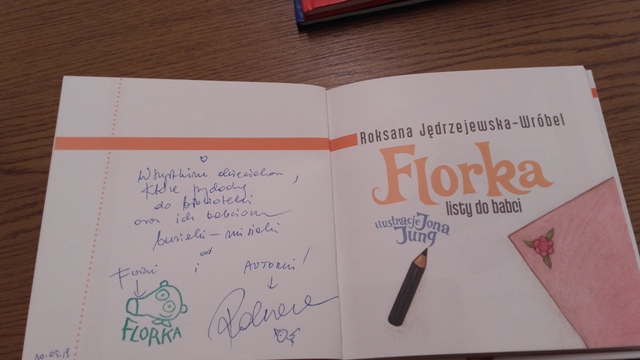 Wszystkim dzieciakom,
które przyjdą
do biblioteki
oraz ich babciom
buziaki – misiaki
od
Florki i AUTORKI!
FLORKA
Roksana Jędrzejewska-Wróbel
Florka
listy do babci
ilustracje Jona
Jung